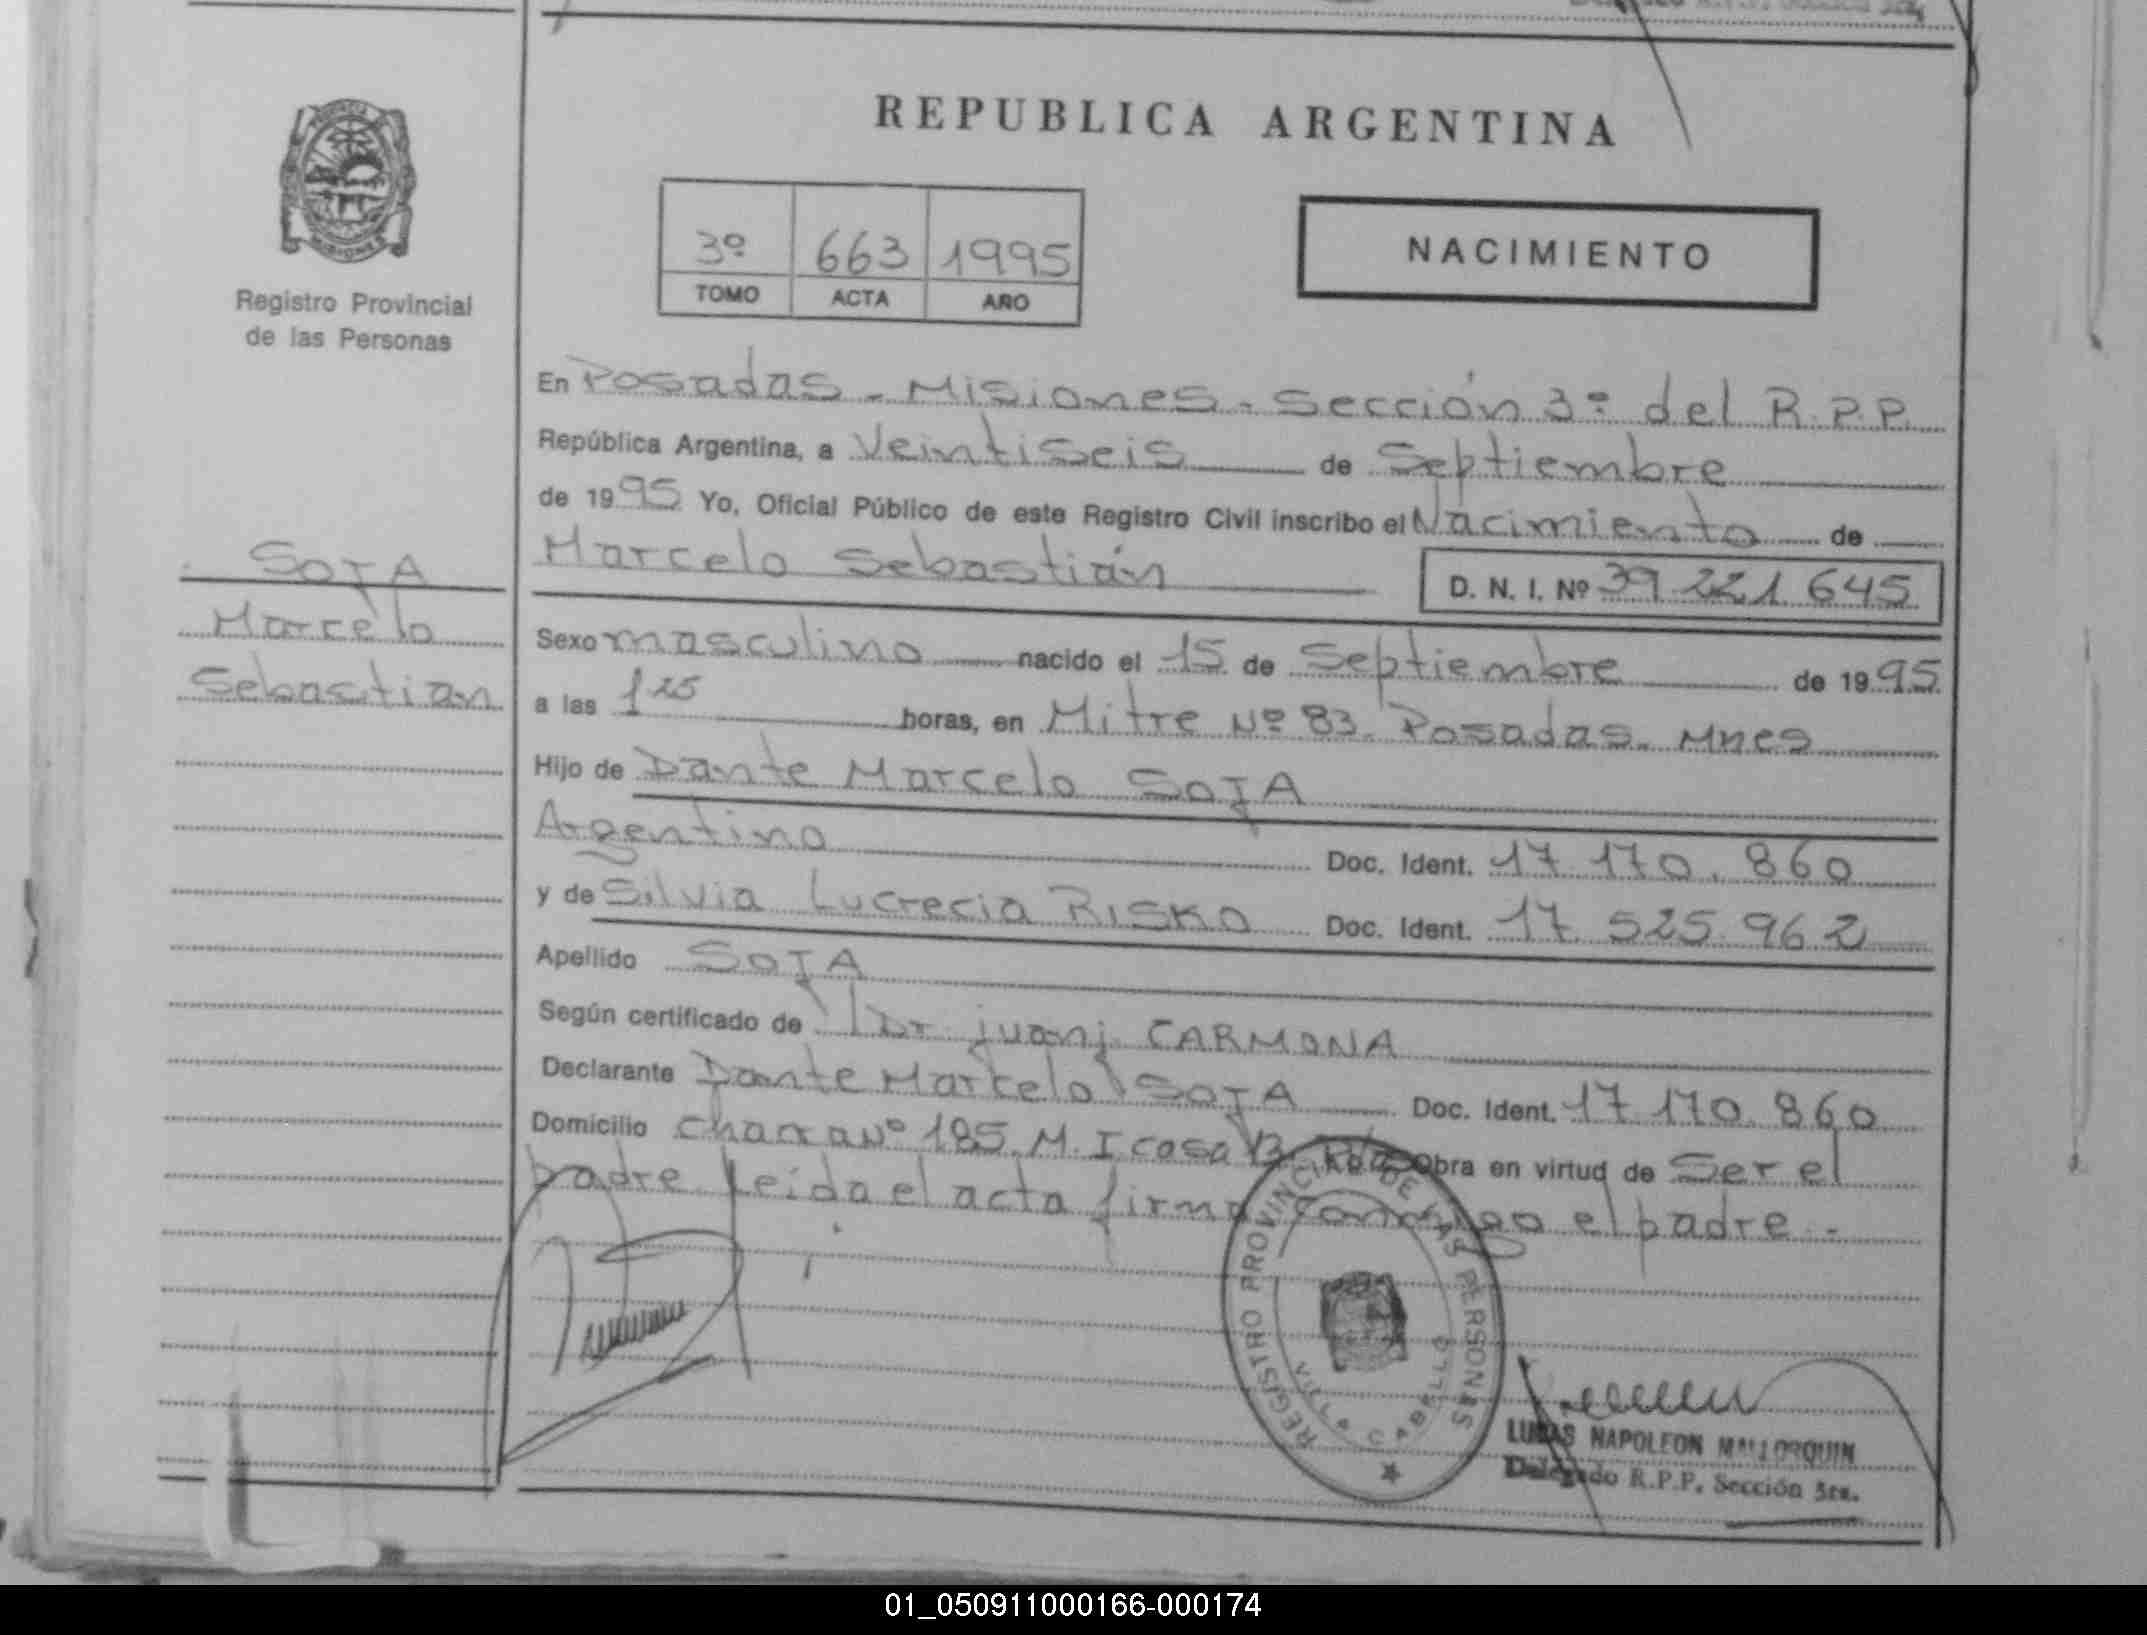 REPUBLICA ARGENTINA
PROVINCIA
MISIONES
Registro Provincial
de las Personas
3º 663 1995
TOMO ACTA AÑO
NACIMIENTO
En Posadas - Misiones - Sección 3º del R.P.P.
República Argentina, a Veintiseis de Septiembre
de 1995 Yo, Oficial Público de este Registro Civil inscribo el Nacimiento de
Marcelo Sebastián D. N. I. Nº 39 221 645
SOJA
Marcelo
Sebastian
Sexo masculino nacido el 15 de Septiembre de 1995
a las 1 25 horas, en Mitre Nº 83. Posadas. Mnes
Hijo de Dante Marcelo SOJA
Argentino Doc. Ident. 17 170. 860
y de Silvia Lucrecia RISKO Doc. Ident. 17 525 962
Apellido SOJA
Según certificado de Dr. juan j. CARMONA
Declarante Dante Marcelo SOJA Doc. Ident. 17 170. 860
Domicilio Chacra Nº 185. M. I casa 13 Obra en virtud de Ser el
padre Leída el acta firma conmigo el padre. -
REGISTRO PROVINCIAL DE LAS PERSONAS
VILLA CABELLO
LUCAS NAPOLEON MALLORQUIN
Delegado R.P.P. Sección 3ra.
01_050911000166-000174